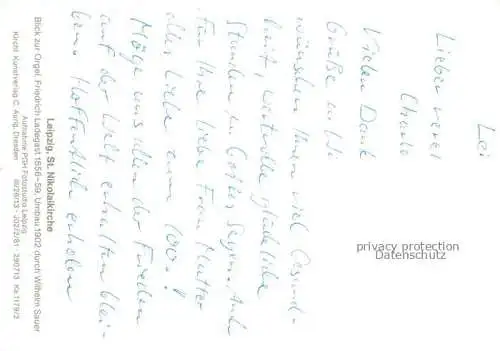 Lei
Lieber
Vielen Dank
Grüße
wünschen Ihnen viel Gesund-
heit, wertvolle glückliche
Stunden in Gottes Segen. Auch
für Ihre liebe Frau Mutter
alles Liebe zum 100.!
Möge uns allen der Frieden
auf der Welt erhalten blei-
ben. Hoffentlich erholen
Leipzig, St. Nikolaikirche
Blick zur Orgel, Friedrich Ladegast 1856–59, Umbau 1902 durch Wilhelm Sauer
Aufnahme PGH Fotostudio Leipzig
Kirchl. Kunstverlag C. Aurig, Dresden III/26/13 · J02/2/81 280713 Ka.1179/2
privacy protection
Datenschutz